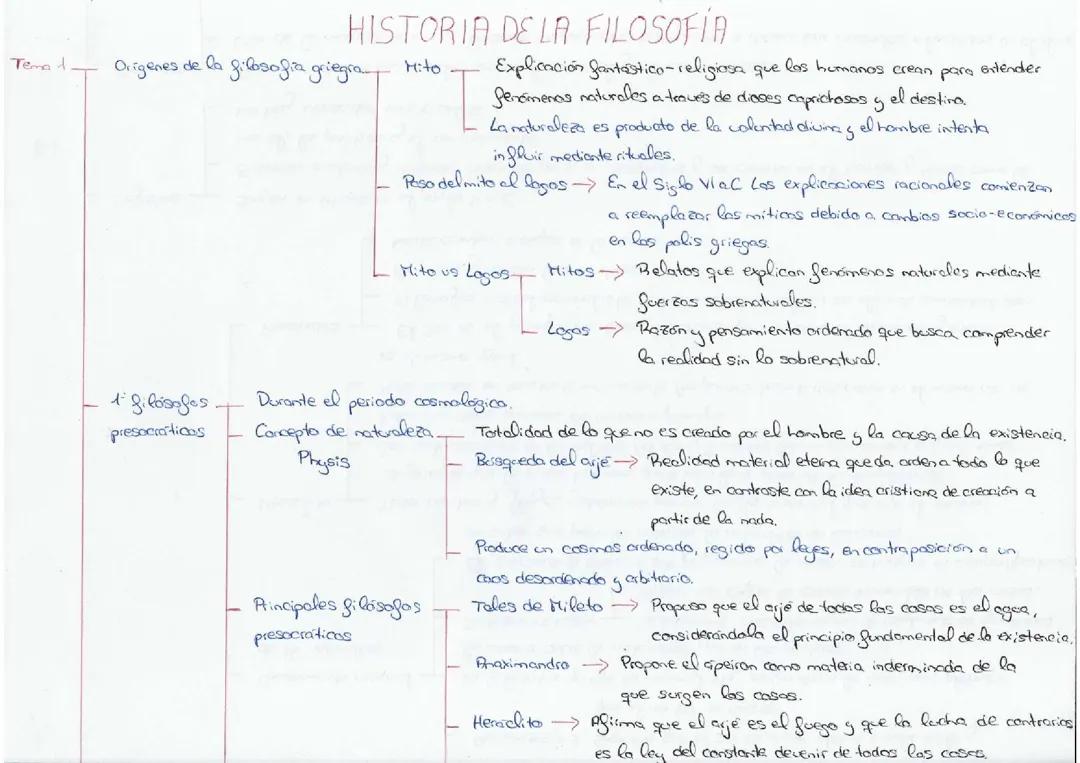 HISTORIA DE LA FILOSOFÍA
Tema 1 Orígenes de la filosofía griega Mito Explicación fantástico-religiosa que los humanos crean para entender
fenómenos naturales a través de dioses caprichosos y el destino.
La naturaleza es producto de la voluntad divina y el hombre intenta
influir mediante rituales.
Paso del mito al logos → En el Siglo VI a.C Las explicaciones racionales comienzan
a reemplazar las míticas debido a cambios socio-económicos
en las polis griegas.
Mito vs Logos Mitos → Relatos que explican fenómenos naturales mediante
fuerzas sobrenaturales.
Logos → Razón y pensamiento ordenado que busca comprender
la realidad sin lo sobrenatural.
1º filósofos Durante el periodo cosmológico.
presocráticos Concepto de naturaleza Totalidad de lo que no es creado por el hombre y la causa de la existencia.
Physis Búsqueda del arjé → Realidad material eterna que da orden a todo lo que
existe, en contraste con la idea cristiana de creación a
partir de la nada.
Produce un cosmos ordenado, regido por leyes, en contraposición a un
caos desordenado y arbitrario.
Principales filósofos Tales de Mileto → Propuso que el arjé de todas las cosas es el agua,
presocráticos considerándola el principio fundamental de la existencia.
Anaximandro → Propone el ápeiron como materia inderminada de la
que surgen las cosas.
Heráclito → Afirma que el arjé es el fuego y que la lucha de contrarios
es la ley del constante devenir de todas las cosas.